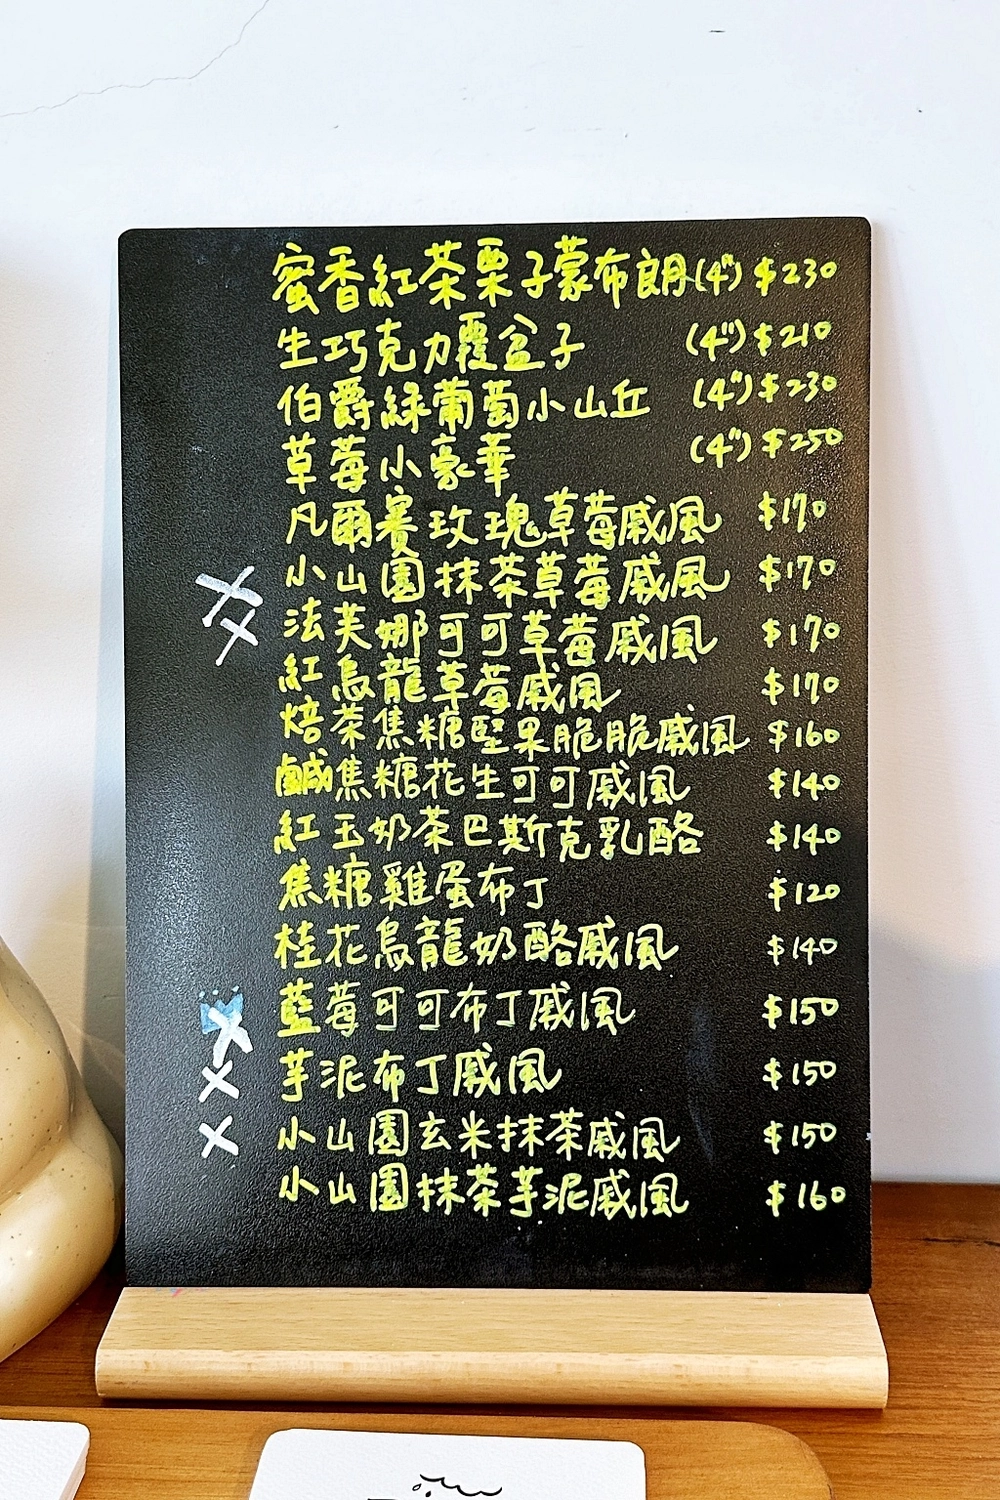 蜜香紅茶栗子蒙布朗(4") $230
生巧克力覆盆子 (4") $210
伯爵綠葡萄小山丘 (4") $230
草莓小豪華 (4") $250
凡爾賽玫瑰草莓戚風 $170
小山園抹茶草莓戚風 $170
法芙娜可可草莓戚風 $170
紅烏龍草莓戚風 $170
焙茶焦糖堅果脆脆戚風 $160
鹹焦糖花生可可戚風 $140
紅玉奶茶巴斯克乳酪 $140
焦糖雞蛋布丁 $120
桂花烏龍奶酪戚風 $140
藍莓可可布丁戚風 $150
芋泥布丁戚風 $150
小山園玄米抹茶戚風 $150
小山園抹茶芋泥戚風 $160